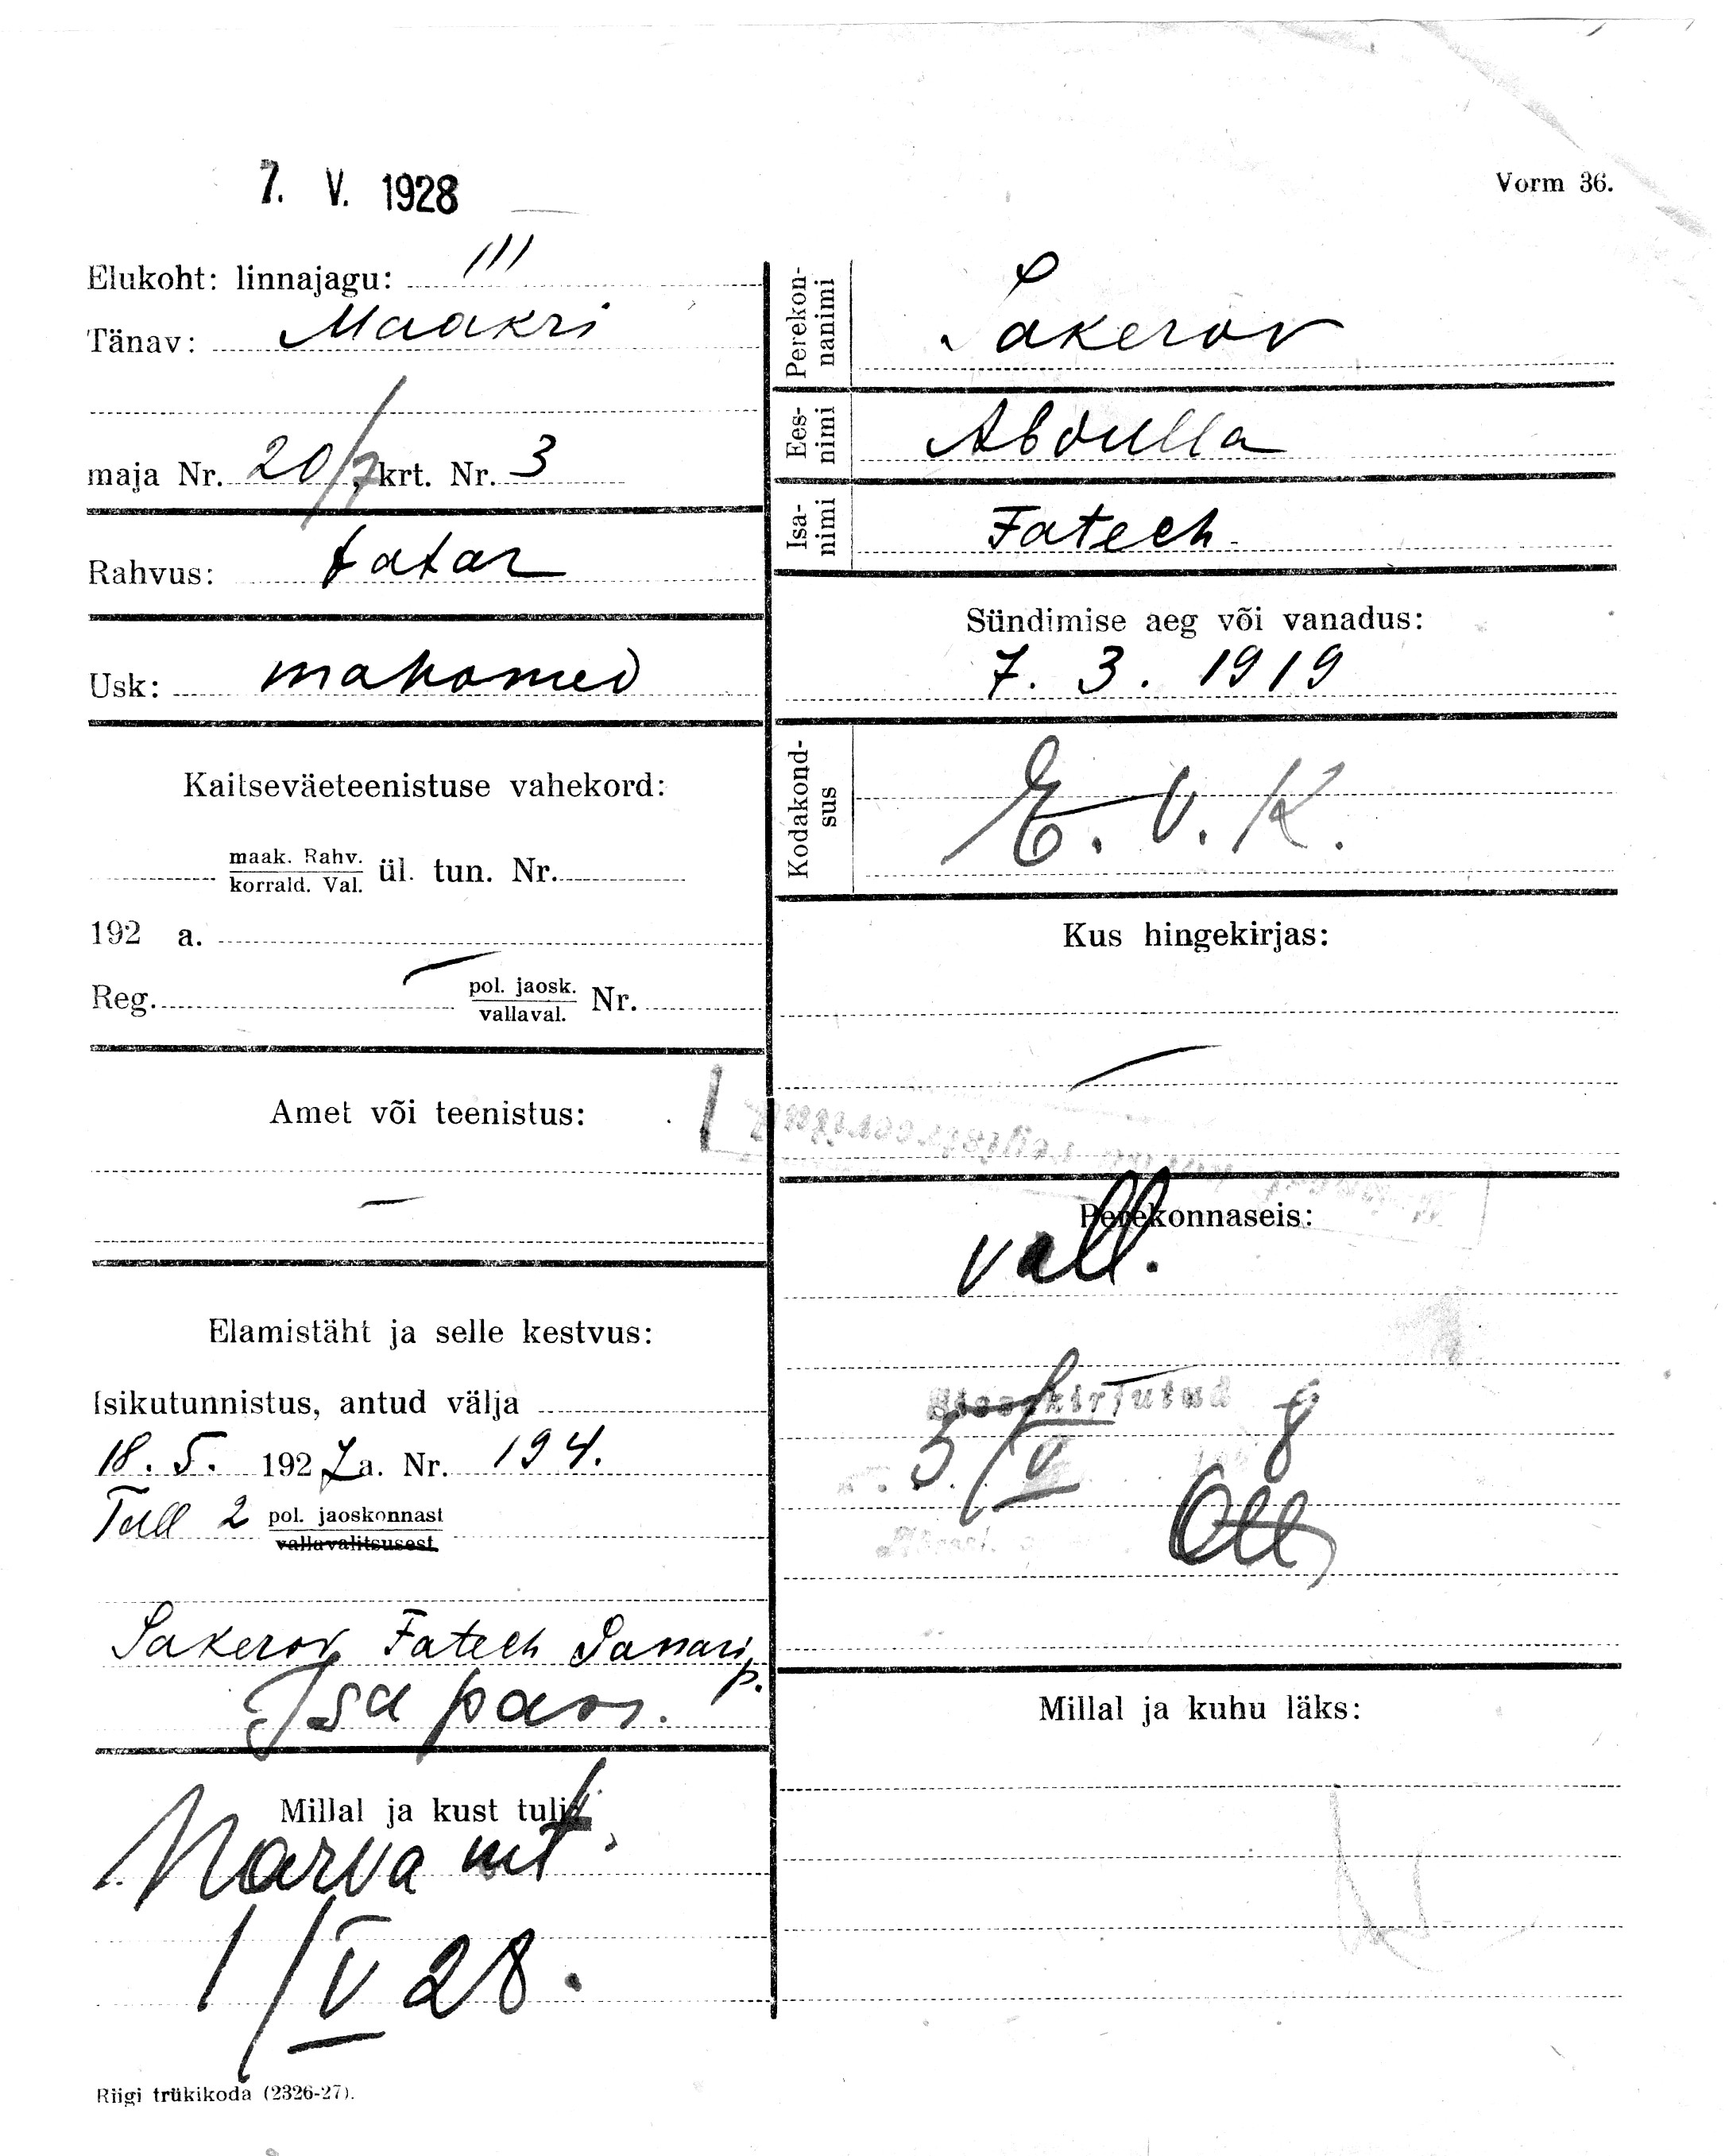 7. V. 1928
Vorm 36.
Elukoht: linnajagu: III
Tänav: Maakri
maja Nr. 20/7, krt. Nr. 3
Rahvus: tatar
Usk: mahomed
Kaitseväeteenistuse vahekord:
maak. Rahv.
korrald. Val. ül. tun. Nr.
192 a.
Reg. pol. jaosk.
vallaval. Nr.
Amet või teenistus:
—
Elamistäht ja selle kestvus:
Isikutunnistus, antud välja
18. 5. 1927 a. Nr. 194.
Tall 2 pol. jaoskonnast
vallavalitsusest
Sakerov Fatech
Isa
Millal ja kust tuli:
Narva mt.
1/V 28.
Riigi trükikoda (2326-27).
Perekon-
nanimi
Sakerov
Ees-
nimi
Abdulla
Isa-
nimi
Fatech
Sündimise aeg või vanadus:
7. 3. 1919
Kodakond-
sus
E. V. K.
Kus hingekirjas:
—
Perekonnaseis:
vall.
Sissekirjutud
5/V 8
Millal ja kuhu läks: